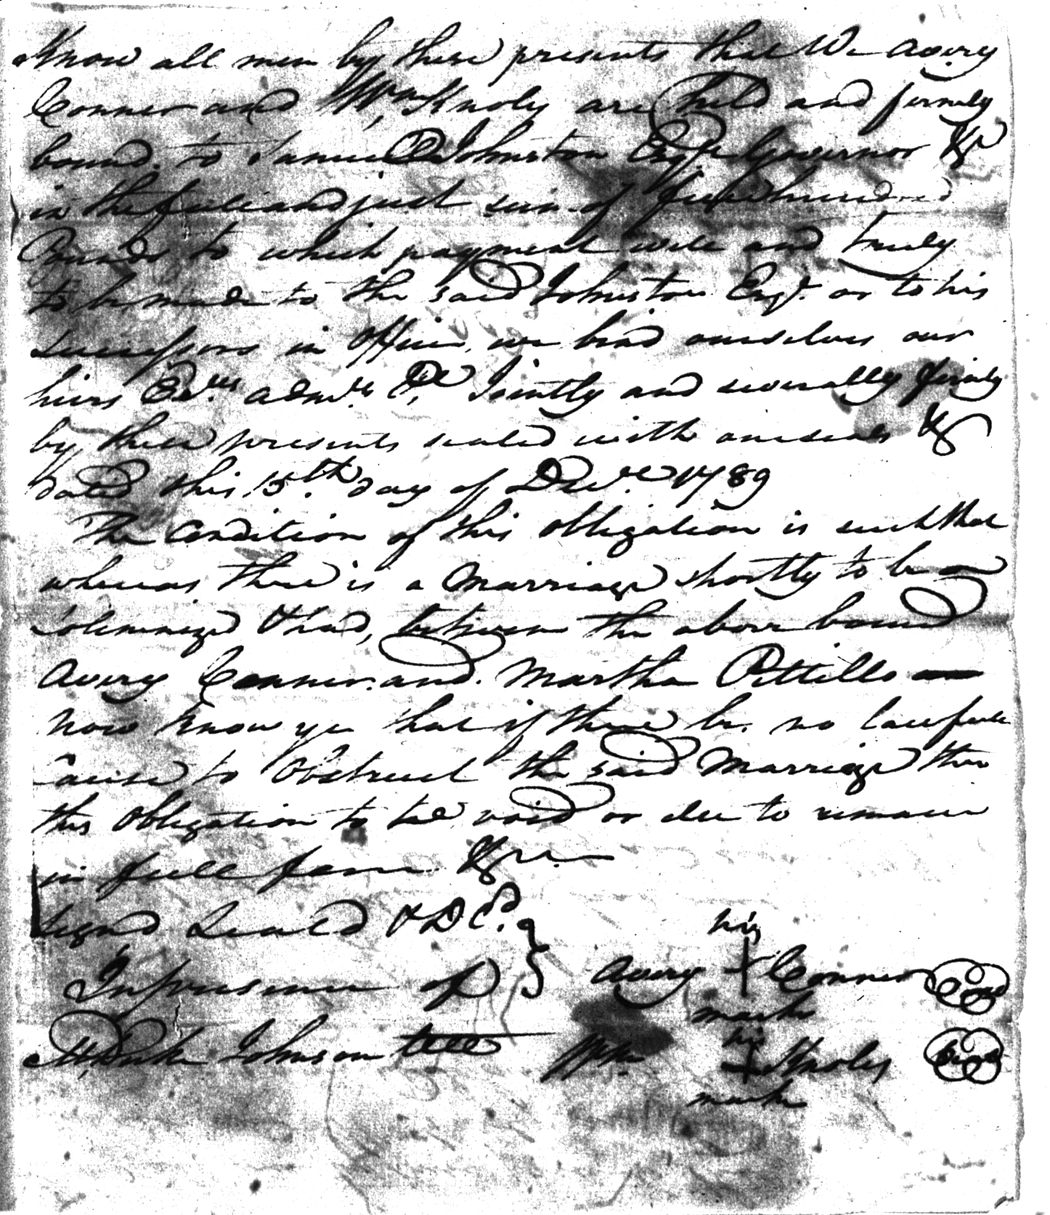 Know all men by these presents that We Avery
Conner and Wm. Knoles are held and firmly
bound to Samuel Johnston Esqr. Governor &c
in the full and just sum of five hundred
Pounds to which payment well and truly
to be made to the said Johnston Esqr. or to his
successors in Office, we bind ourselves our
heirs Exrs. admrs. &c. Jointly and severally firmly
by these presents sealed with our seals &
dated this 15th day of Decr. 1789
The Condition of this obligation is such that
whereas there is a Marriage shortly to be
solemnized & had, between the above bound
Avery Conner and Martha Pittillo
now know ye that if there be no lawfull
cause to Obstruct the said Marriage then
this obligation to be void or else to remain
in full force &c
Signd Seald & Dld.
In presence of Avery his Conner Seal
mark
Johnson Wm. his Knoles Seal
mark